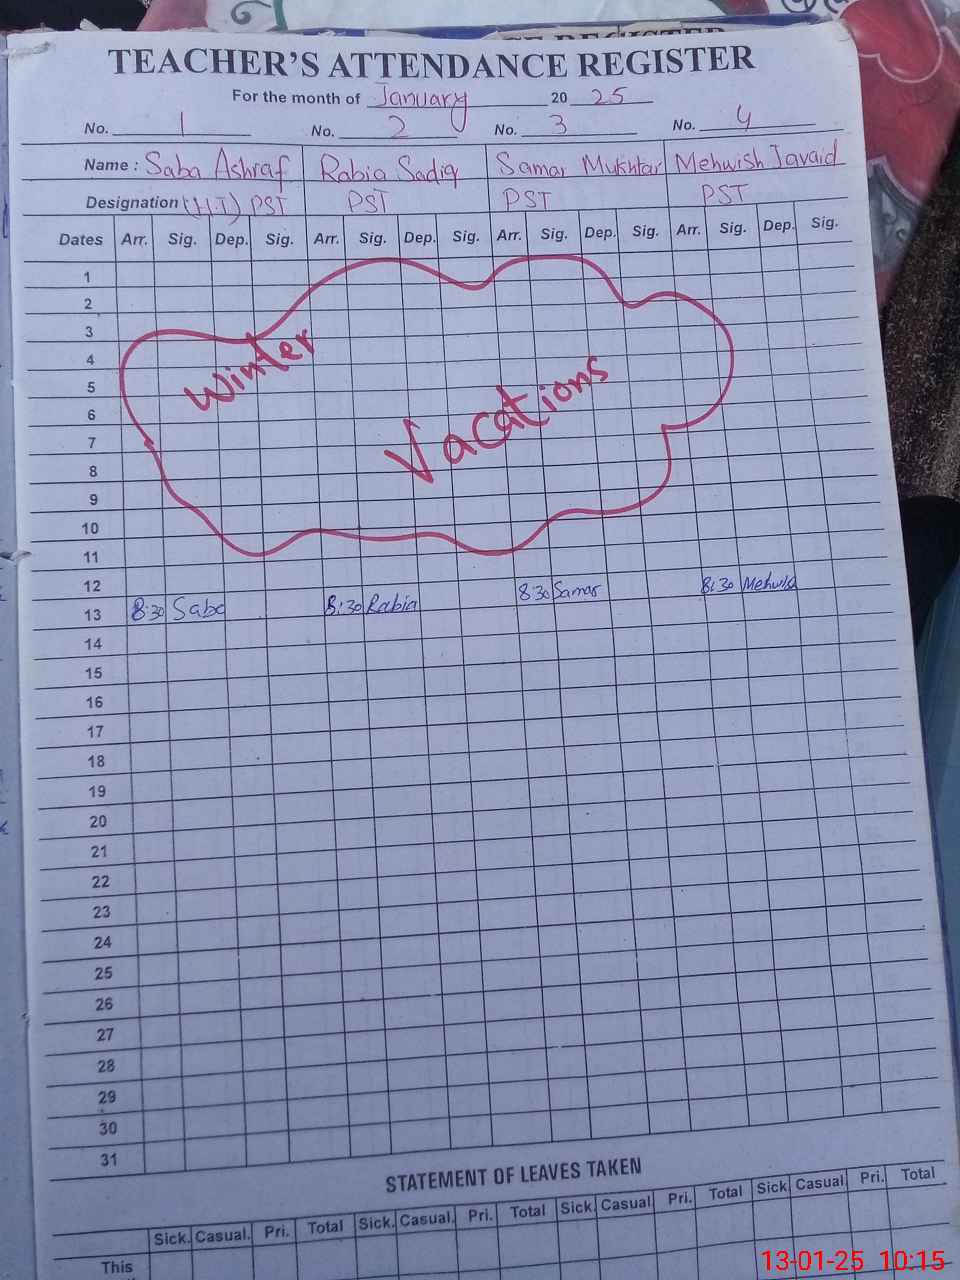 TEACHER'S ATTENDANCE REGISTER
For the month of January 2025
No. 1 No. 2 No. 3 No. 4
Name : Saba Ashraf Rabia Sadiq Samar Mukhtar Mehwish Javaid
Designation (H.T) PST PST PST PST
Dates Arr. Sig. Dep. Sig. Arr. Sig. Dep. Sig. Arr. Sig. Dep. Sig. Arr. Sig. Dep. Sig.
1
2
3
4
5
6
7
8
9
10
11
Winter
Vacations
12
13 8:30 Saba 8:30 Rabia 8:30 Samar 8:30 Mehwish
14
15
16
17
18
19
20
21
22
23
24
25
26
27
28
29
30
31
STATEMENT OF LEAVES TAKEN
Sick. Casual. Pri. Total Sick. Casual. Pri. Total Sick. Casual Pri. Total Sick. Casual. Pri. Total
This
13-01-25 10:15